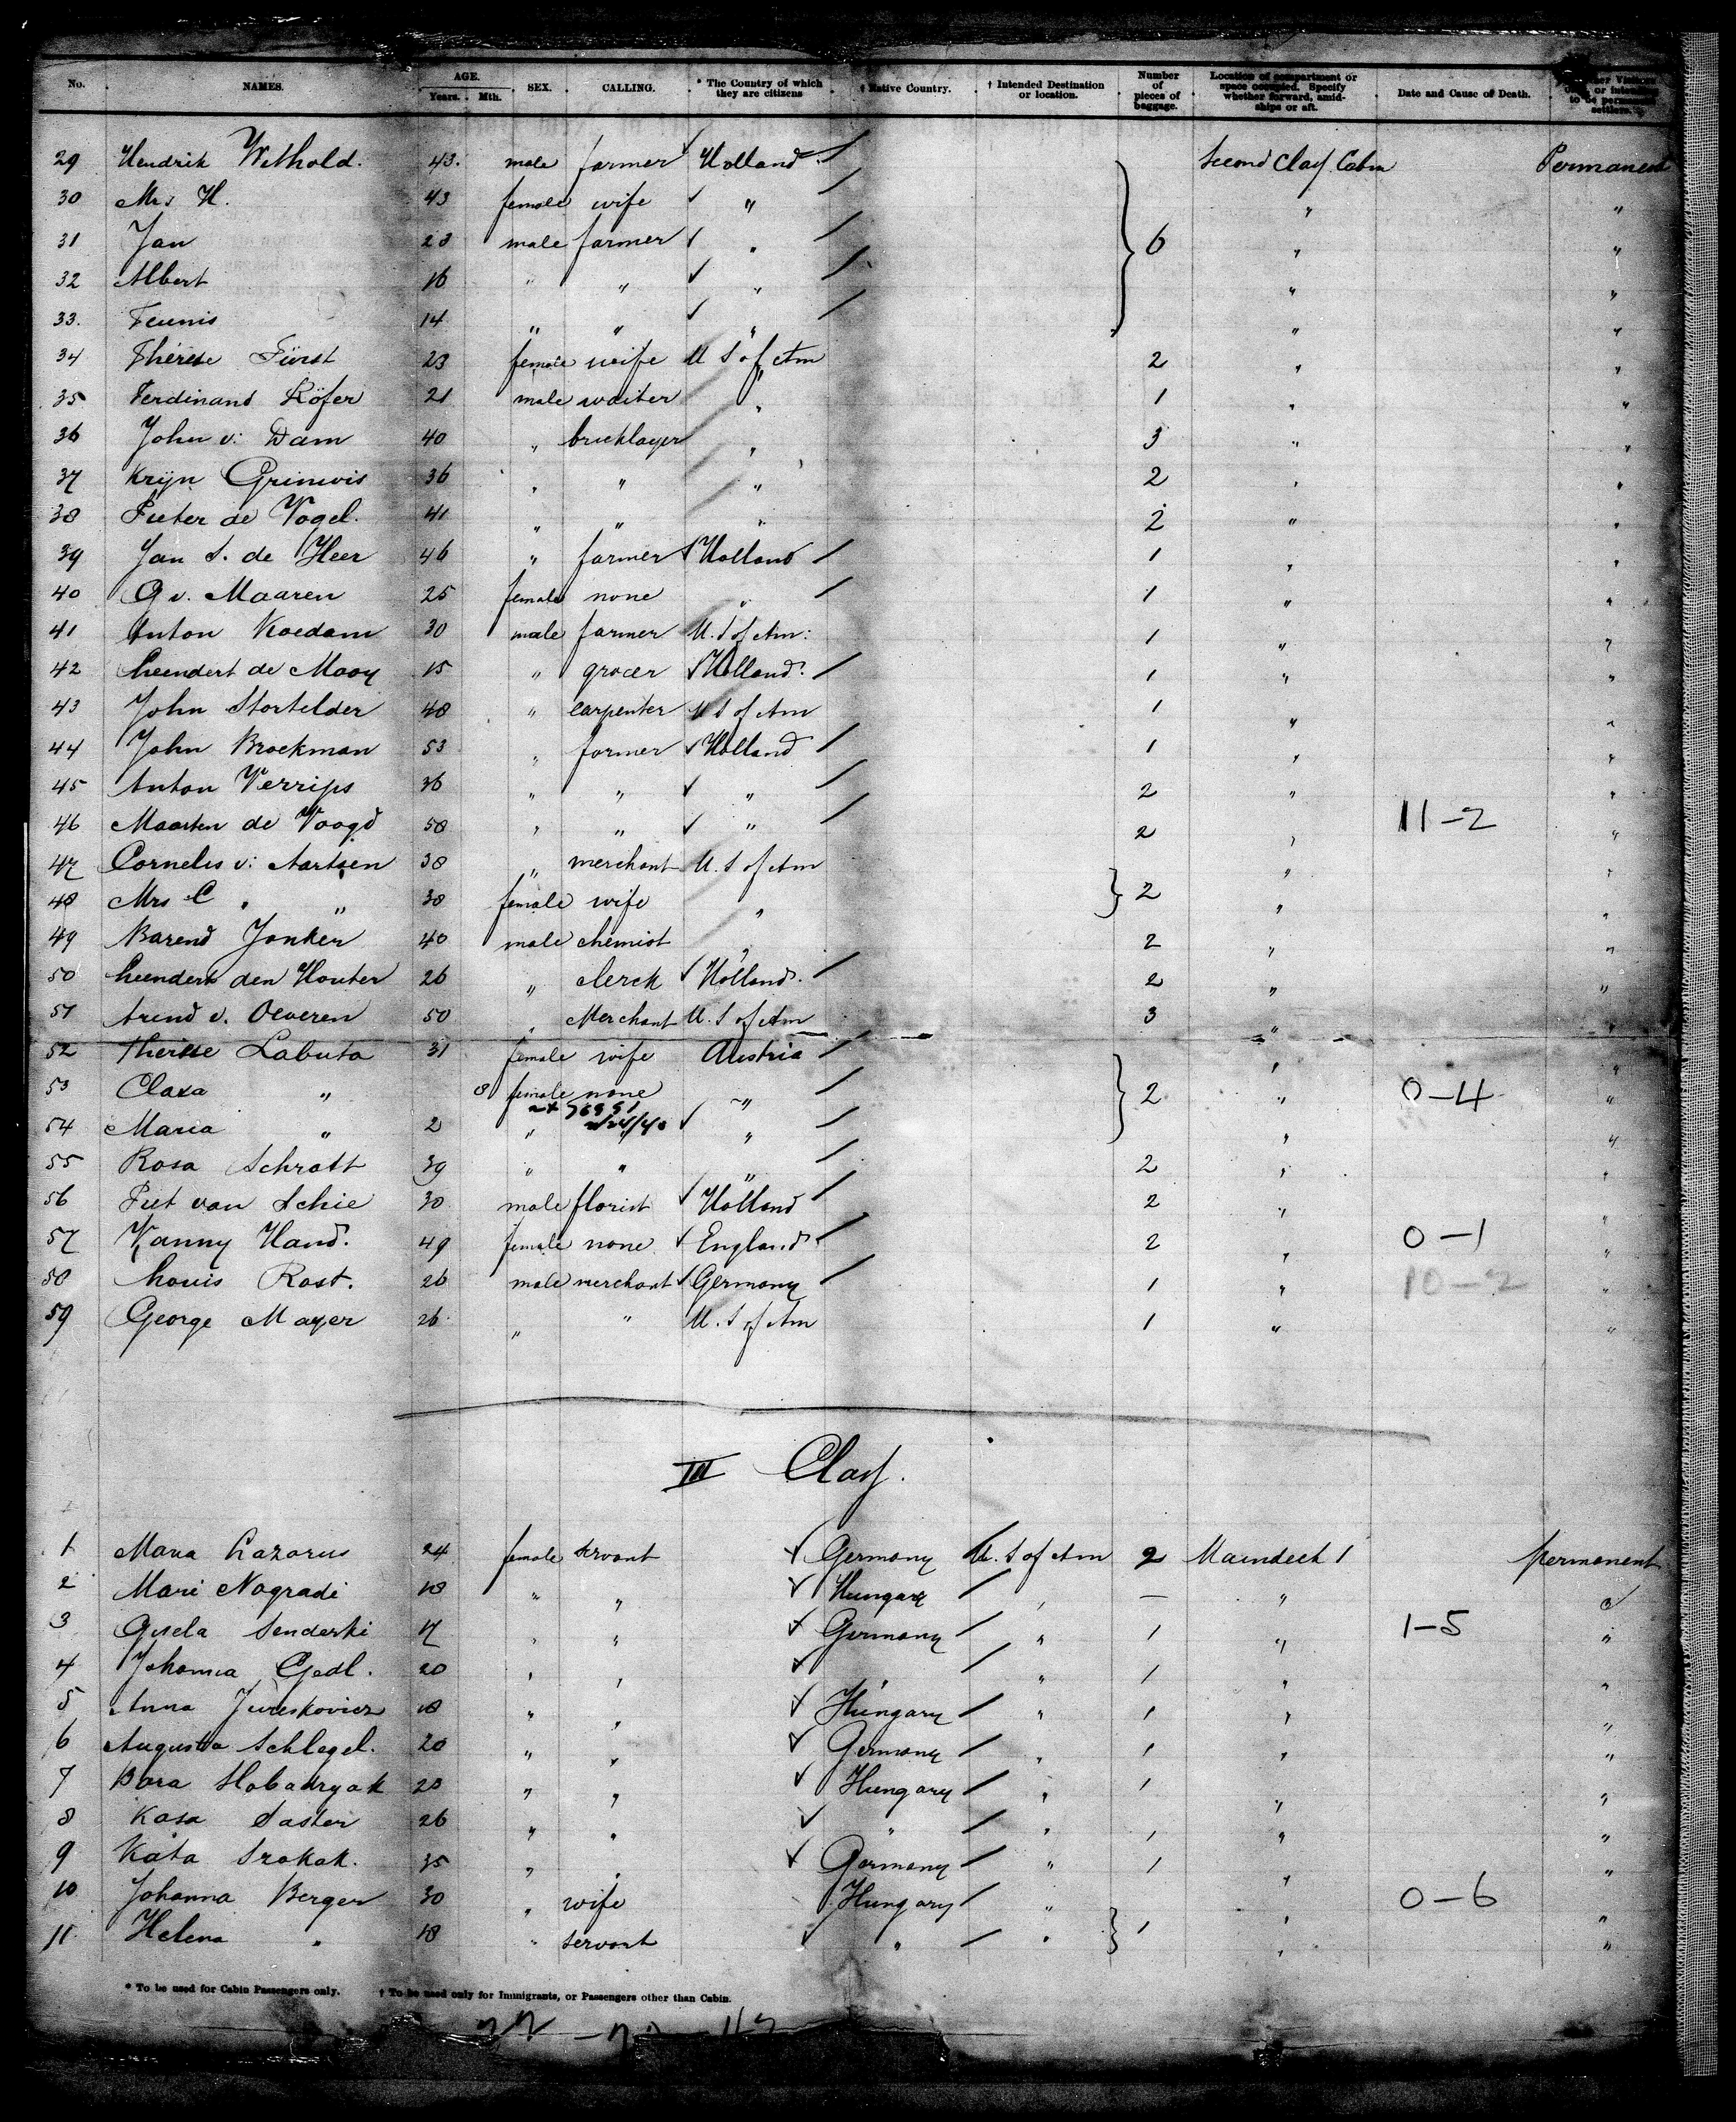 No. NAMES. AGE. Years. Mth. SEX. CALLING. * The Country of which they are citizens † Native Country. † Intended Destination or location. Number of pieces of baggage. Location of compartment or space occupied. Specify whether forward, amidships or aft. Date and Cause of Death.
29 Hendrik Withold. 43. male farmer ✓ Holland / Second Class Cabin Permanent
30 Mrs H. 43 female wife ✓ " / " "
31 Jan 23 male farmer ✓ " / 6 " "
32 Albert 16 " " ✓ " / " "
33. Teunis 14 " " ✓ " / " "
34 Therese Fürst 23 female wife U S of Am 2 " "
35 Ferdinand Köfer 21 male waiter " 1 " "
36 John v: Dam 40 " bricklayer " 3 " "
37 Krijn Grinwis 36 " " " 2 " "
38 Pieter de Vogel. 41 " " " 2 " "
39 Jan S. de Heer 46 " farmer ✓ Holland / 1 " "
40 G v. Maaren 25 female none " / 1 " "
41 Anton Koedam 30 male farmer U. S of Am: 1 " "
42 Leendert de Mooy 15 " grocer ✓ Holland / 1 " "
43 John Stortelder 48 " carpenter U S of Am 1 " "
44 John Broekman 53 " farmer ✓ Holland / 1 " "
45 Anton Verrips 36 " " ✓ " / 2 " "
46 Maarten de Voogd 58 " " ✓ " / 2 " 11-2 "
47 Cornelis v: Aartsen 38 " merchant U. S of Am " "
48 Mrs C " " 38 female wife " 2 " "
49 Barend Jonker 40 male chemist " 2 " "
50 Leendert den Houter 26 " clerck ✓ Holland. / 2 " "
51 Arend v. Oeveren 50 " Merchant U. S of Am 3 " "
52 Therese Labuta 31 female wife Austria / " "
53 Clara " 8 female none " / 2 " 0-4 "
2/24/40
54 Maria " 2 " " ✓ " / " "
55 Rosa Schrott 39 " " " / 2 " "
56 Piet van Schie 30 male florist ✓ Holland / 2 " "
57 Vanny Hand. 49 female none ✓ England / 2 " 0-1 "
58 Louis Rost. 26 male merchant ✓ Germany / 1 " 10-2 "
59 George Mayer 26 " " U. S of Am 1 " "
III Class.
1 Maria Lazarus 24 female servant ✓ Germany U. S of Am 2 Maindeck 1 permanent
2 Mari Nogradi 18 " " ✓ Hungary / " — " "
3 Gisela Senderki 17 " " ✓ Germany / " 1 " 1-5 "
4 Johanna Gedl. 20 " " ✓ " / " 1 " "
5 Anna Jureskovicz 18 " " ✓ Hungary / " 1 " "
6 Augusta Schlegel. 20 " " ✓ Germany / " 1 " "
7 Bara Habadryak 20 " " ✓ Hungary / " 1 " "
8 Kasa Saster 26 " " ✓ " / " 1 " "
9 Kata Srokak. 35 " " ✓ Germany / " 1 " "
10 Johanna Berger 30 " wife Hungary / " " 0-6 "
11. Helena " 18 " servant ✓ " / " 1 " "
* To be used for Cabin Passengers only. † To be used only for Immigrants, or Passengers other than Cabin.